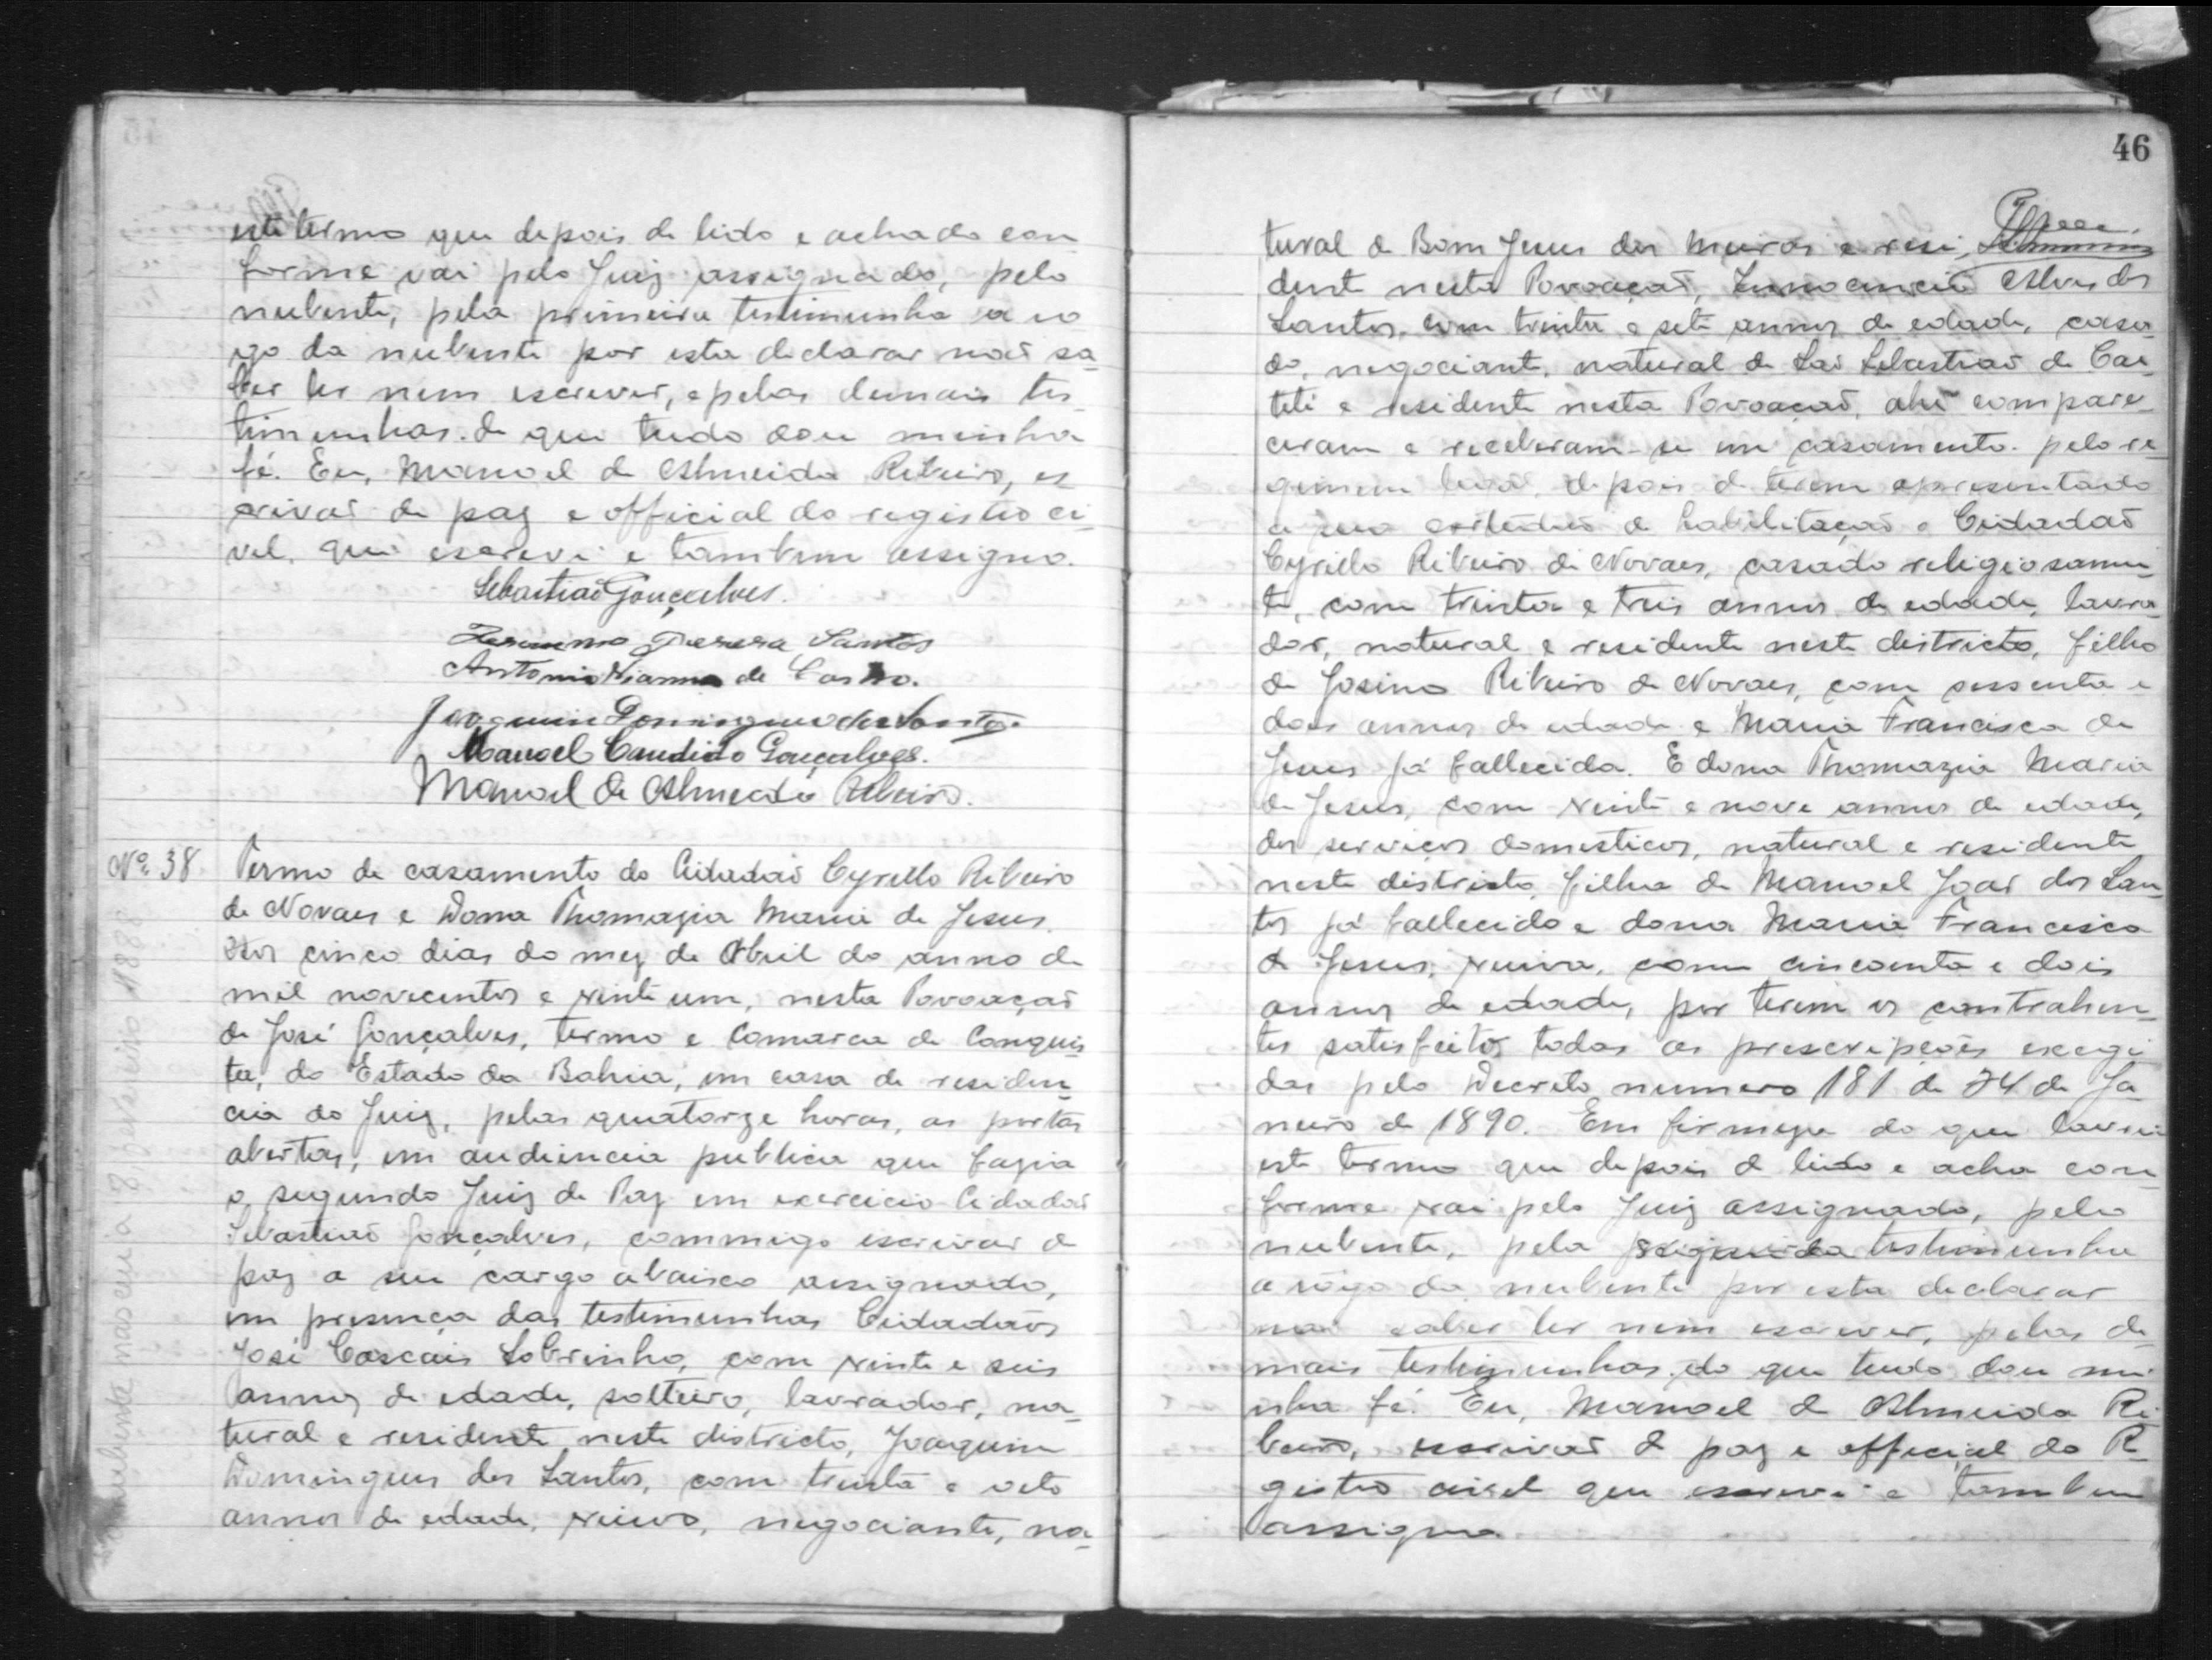 este termo que depois de lido e achado con
forme vai pelo Juiz assignado, pelo
nubente, pela primeira testimunha a ro
go da nubente por esta declarar não sa
ber ler nem escrever, e pelas demais tes
timunhas. do que tudo dou minha
fé. Eu, Manoel de Almeida Ribeiro, es
crivão de paz e official do registro ci
vel, que escrevi e tambem assigno.
Sebastião Gonçalves.
Pereira Santos
Antonio Vianna de Castro.
Joaquim Domingues dos Santos
Manoel Candido Gonçalves.
Manoel de Almeida Ribeiro.
Nº 38. Termo de casamento do Cidadão Cyrillo Ribeiro
de Novaes e Dona Thomazia Maria de Jesus.
Aos cinco dias do mez de Abril do anno de
mil novecentos e vinte um, nesta Povoação
de José Gonçalves, termo e Comarca de Conquis
ta, do Estado da Bahia, em casa de residen
cia do Juiz, pelas quatorze horas, as portas
abertas, em audiencia publica que fazia
o segundo Juiz de Paz em exercicio Cidadão
Sebastião Gonçalves, commigo escrivão de
paz a seu cargo abaixo assignado,
em presença das testimunhas Cidadãos
José Cascais Sobrinho, com vinte e seis
annos de edade, solteiro, lavrador, na_
tural e residente neste districto, Joaquim
Domingues dos Santos, com trinta e oito
annos de edade, viuvo, negociante, na_
nubente nasceu a 8 fevereiro 1888
46
tural de Bom Jesus dos Meiras e resi_
dente nesta Povoação, Innocencio Alves dos
Santos, com trinta e sete annos de edade, casa
do, negociante, natural de São Sebastião de Cae_
teté e residente nesta Povoação, ahi compare_
ceram e receberam-se em casamento pelo re_
gimem legal, depois de terem apresentado
a sua certidão de habilitação o Cidadão
Cyrillo Ribeiro de Novaes, casado religiosamen_
te, com trinta e tres annos de edade, lavra_
dor, natural e residente neste districto, filho
de Josino Ribeiro de Novaes, com sessenta e
dois annos de edade e Maria Francisca de
Jesus já fallecida. E dona Thomazia Maria
de Jesus, com vinte e nove annos de edade,
dos serviços domesticos, natural e residente
neste districto, filha de Manoel João dos San_
tos já fallecido e dona Maria Francisca
de Jesus, viuva, com cincoenta e dois
annos de edade, por terem os contrahen_
tes satisfeitos todas as prescripções exegi
das pelo Decreto numero 181 de 24 de Ja
neiro de 1890. Em firmeza do que lavrei
este termo que depois de lido e acha con
forme vai pelo Juiz assignado, pelo
nubente, pela segunda testimunha
a rogo da nubente por esta declarar
não saber ler nem escrever, pelas de
mais testimunhas. do que tudo dou mi
nha fé. Eu, Manoel de Almeida Ri
beiro, escrivão de paz e official do Re
gistro civel que escrevi e tambem
assigno